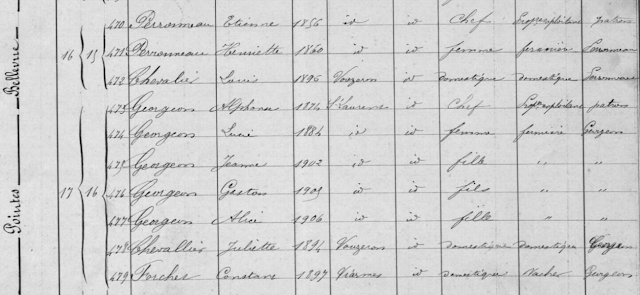 470 Perronneau Etienne 1856 id id Chef Exp patron
16 15 471 Perronneau Henriette 1860 id id femme fermière Perronneau
472 Chevalier 1896 Vouzeron id domestique domestique Perronneau
473 Georgeon Alphonse 1874 St Laurent id Chef patron
474 Georgeon Lucie 1884 id id femme fermière Georgeon
475 Georgeon Jeanne 1902 id id fille " "
17 16 476 Georgeon Gaston 1903 id id fils " "
477 Georgeon Alice 1906 id id fille " "
478 Chevallier Juliette 1894 Vouzeron id domestique domestique Georgeon
479 Forcher Constant 1897 id domestique Vacher Georgeon
Bellevue
Pointes